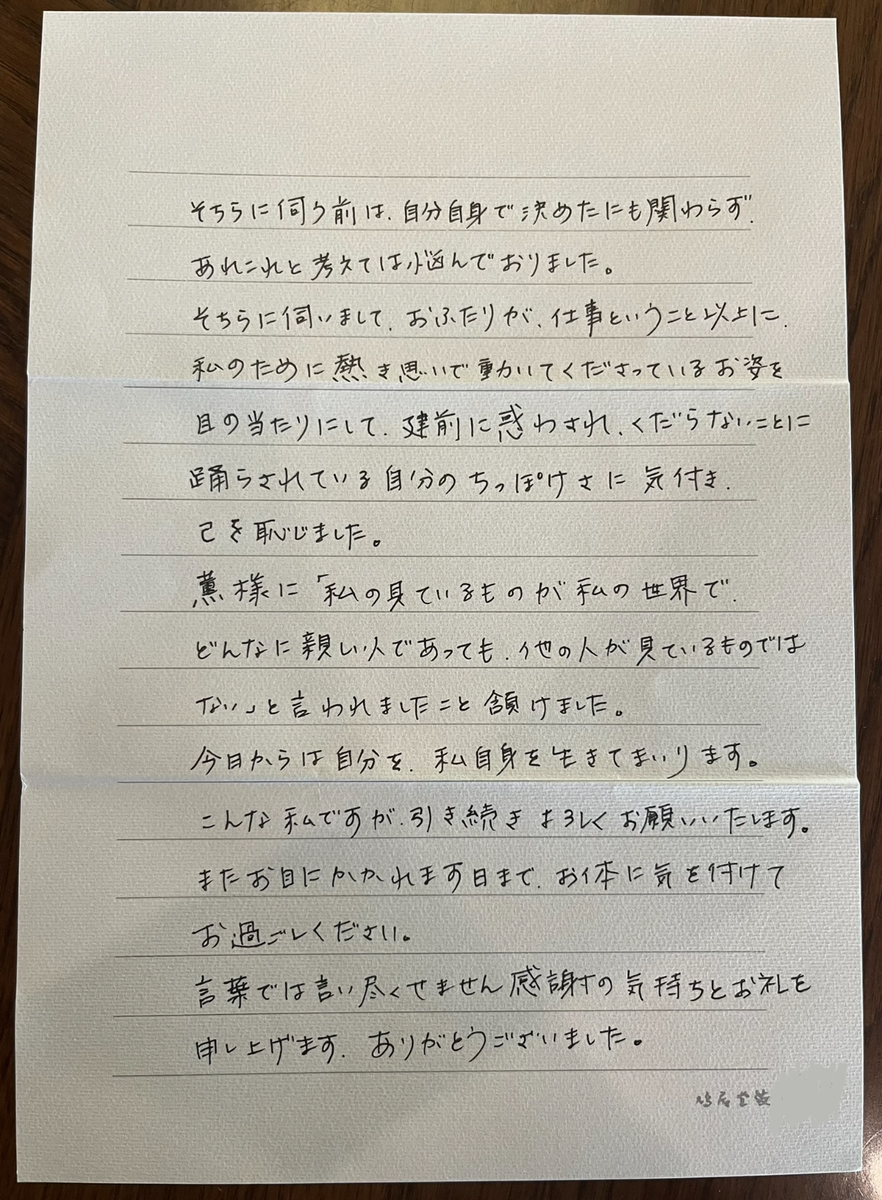 そちらに伺う前は、自分自身で決めたにも関わらず、
あれこれと考えては悩んでおりました。
そちらに伺いまして、おふたりが、仕事ということ以上に、
私のために熱き思いで動いてくださっているお姿を
目の当たりにして、建前に惑わされ、くだらないことに
踊らされている自分のちっぽけさに気付き、
己を恥じました。
薫様に「私の見ているものが私の世界で、
どんなに親しい人であっても、他の人が見ているものでは
ない」と言われましたこと頷けました。
今日からは自分を、私自身を生きてまいります。
こんな私ですが、引き続きよろしくお願いいたします。
またお目にかかれます日まで、お体に気を付けて
お過ごしください。
言葉では言い尽くせません感謝の気持ちとお礼を
申し上げます、ありがとうございました。
鳩居堂製